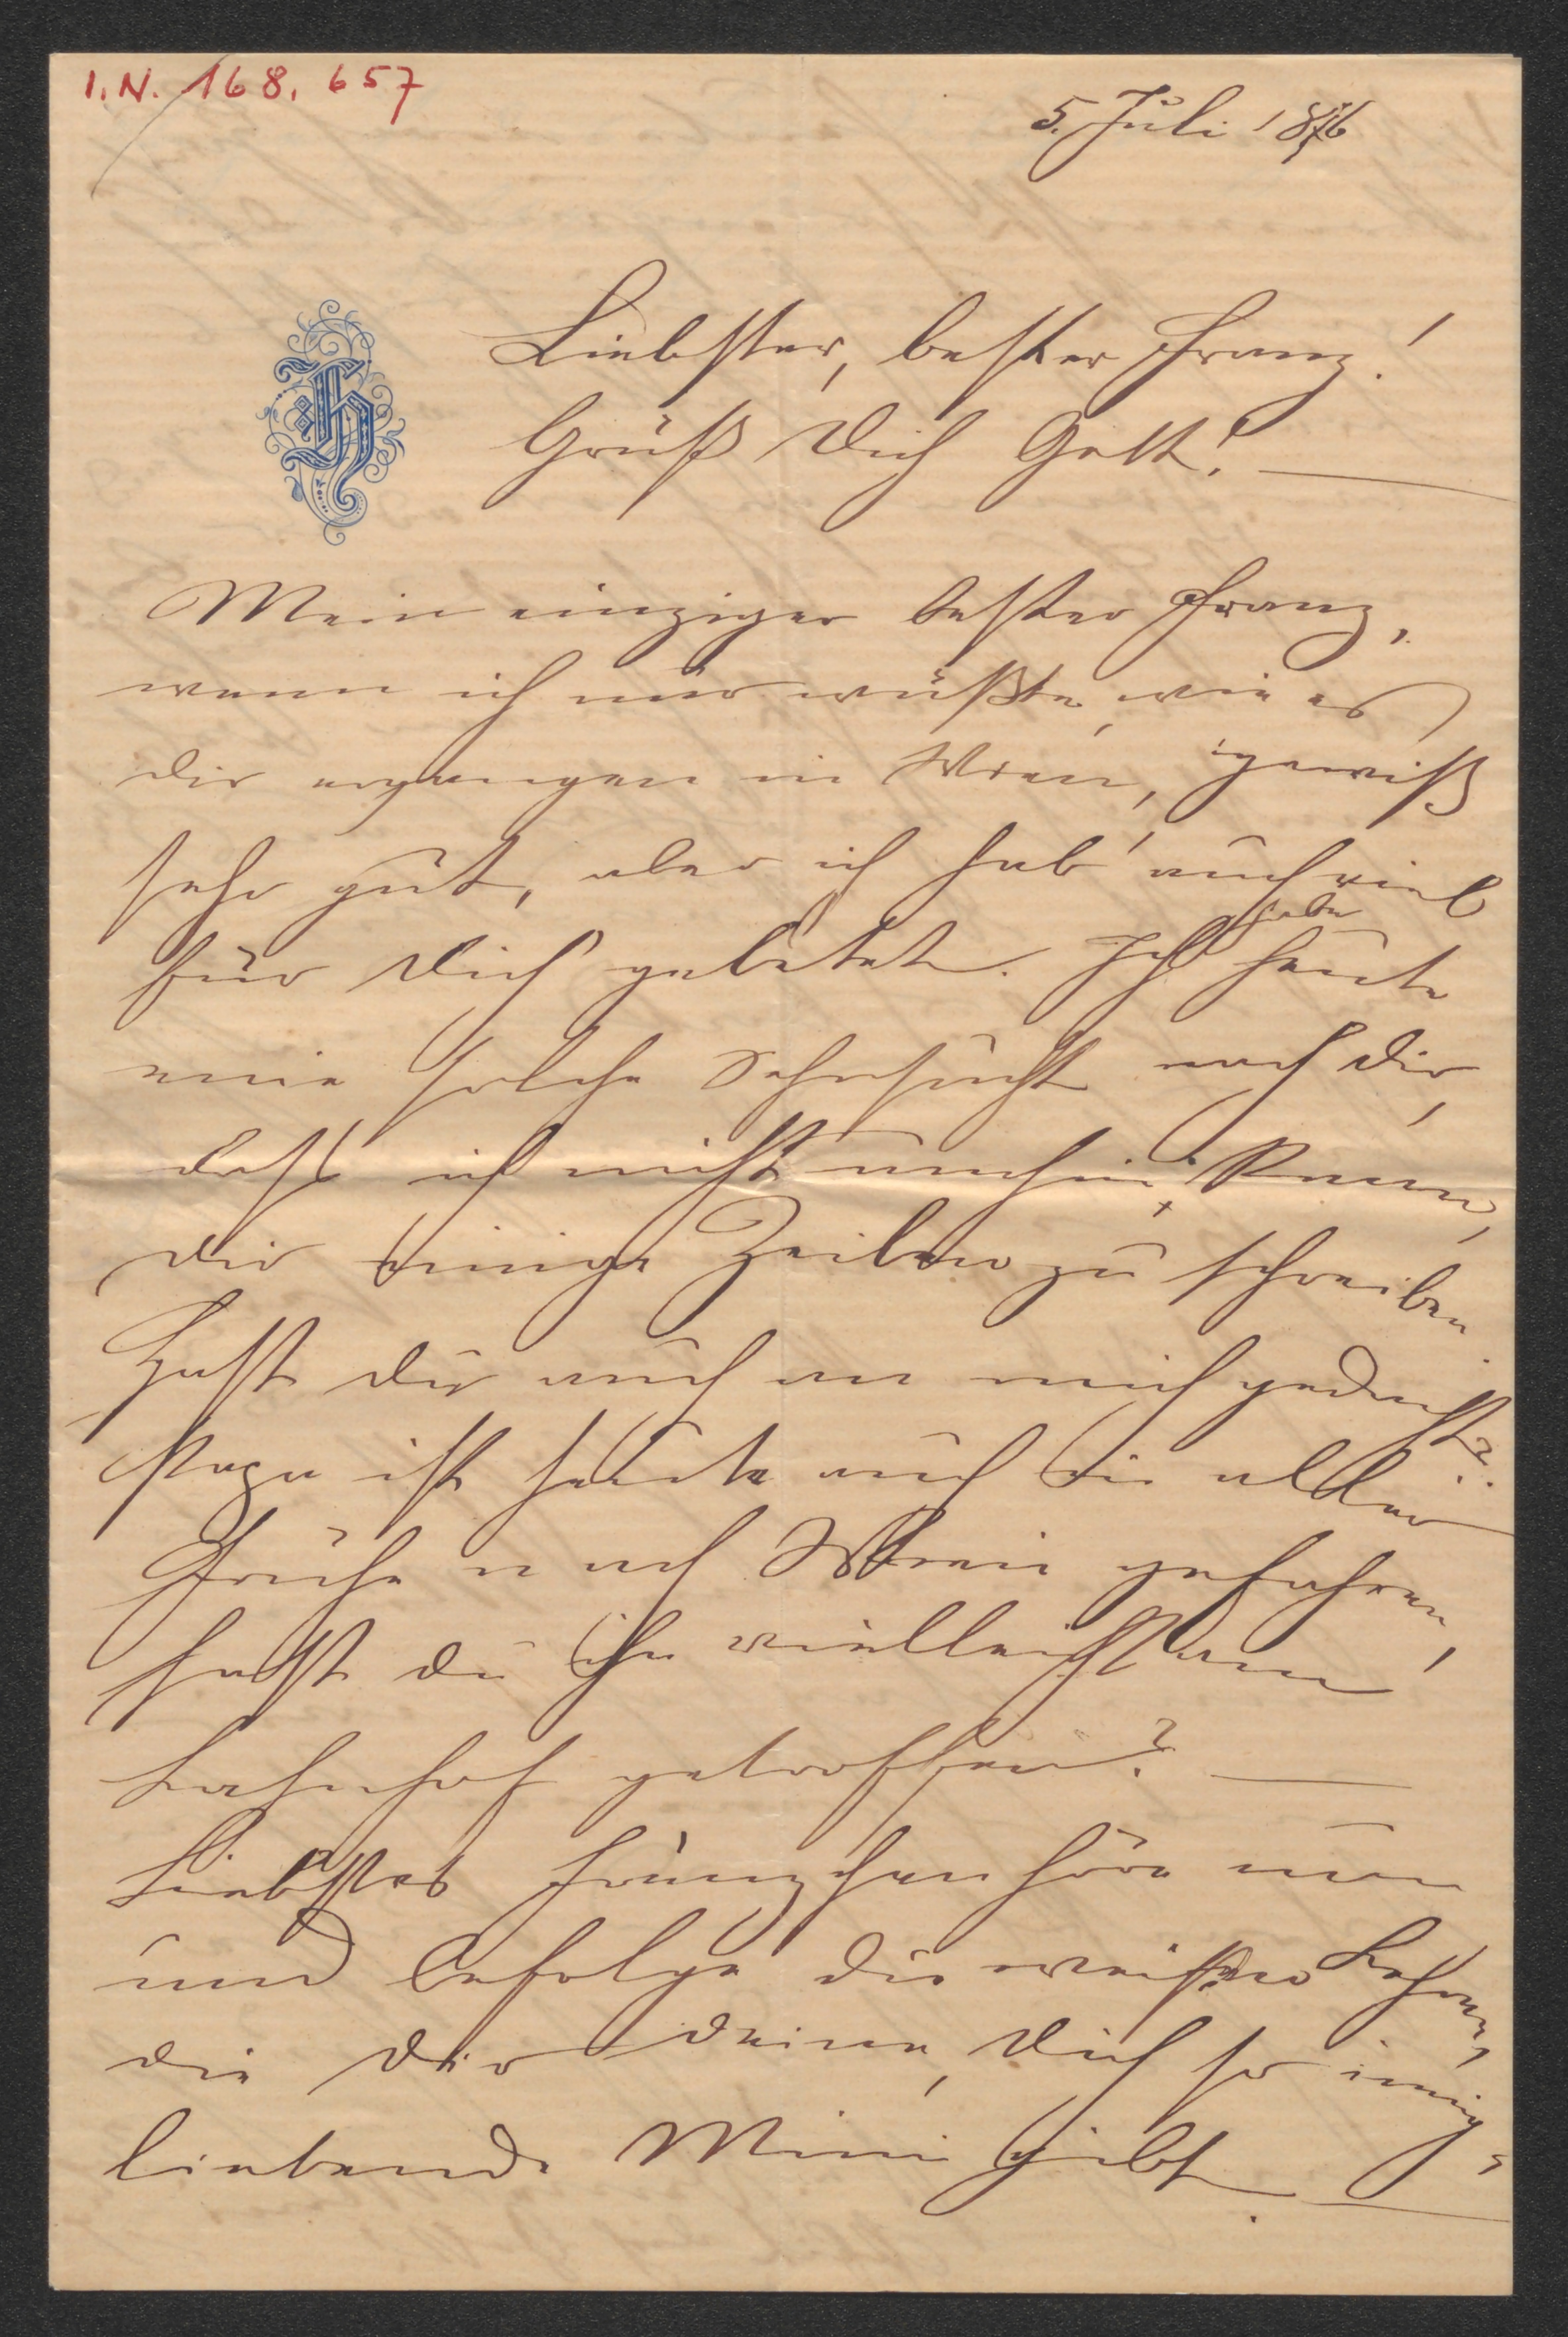 I.N. 168.657
5. Juli 1876
H
Liebster, bester Franz!
Grüß Dich Gott! —
Mein einziger bester Franz,
wenn ich nur wüßte, wie es
dir ergangen in Wien, gewiß
sehr gut, aber ich hab' auch viel
für Dich gebetet. Ich habe heute
eine solche Sehnsucht nach dir,
daß ich nicht umhin kann,
dir einige Zeilen zu schreiben.
Hast du auch an mich gedacht?
Papa ist heute auch in aller
Frühe nach Wien gefahren,
hast du ihn vielleicht am
Bahnhof getroffen? —
Liebstes Fränzchen höre nun
und befolge die weisen Lehren,
die dir deine, Dich so innig-
liebende Mini gibt. —